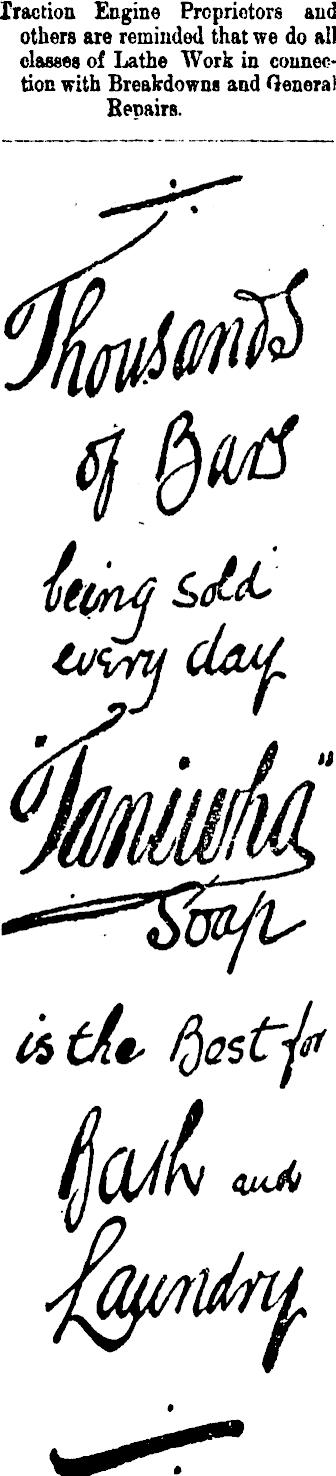 Traction Engine Proprietors and
others are reminded that we do all
classes of Lathe Work in connec-
tion with Breakdowns and General
Repairs.
Thousands
of Bars
being sold
every day
"Taniwha"
Soap
is the Best for
Bath and
Laundry